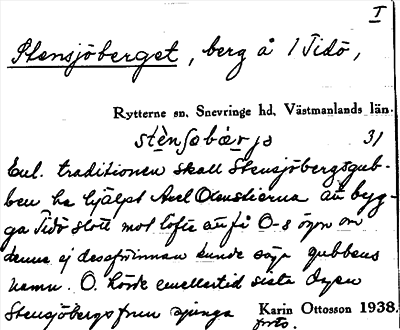 I
Stensjöberget, berg å 1 Tidö,
Rytterne sn. Snevringe hd. Västmanlands län.
stènsobärjo 31
Enl. traditionen skall Stensjöbergsgub-
ben ha hjälpt Axel Oxenstierna att byg-
ga Tidö slott mot löfte att få O-s ögon om
denne ej dessförinnan kunde säga gubbens
namn. O. hörde emellertid sista dagen
Stensjöbergsfrun sjunga
Karin Ottosson 1938.
forts.